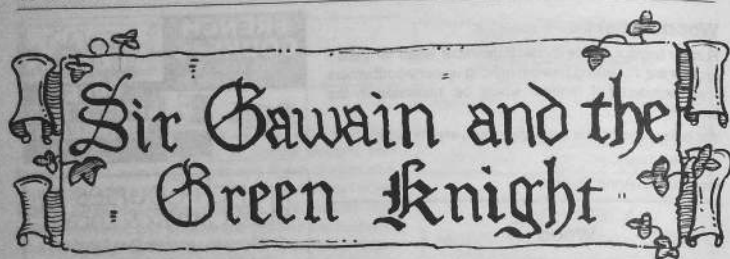 Sir Gawain and the
Green Knight